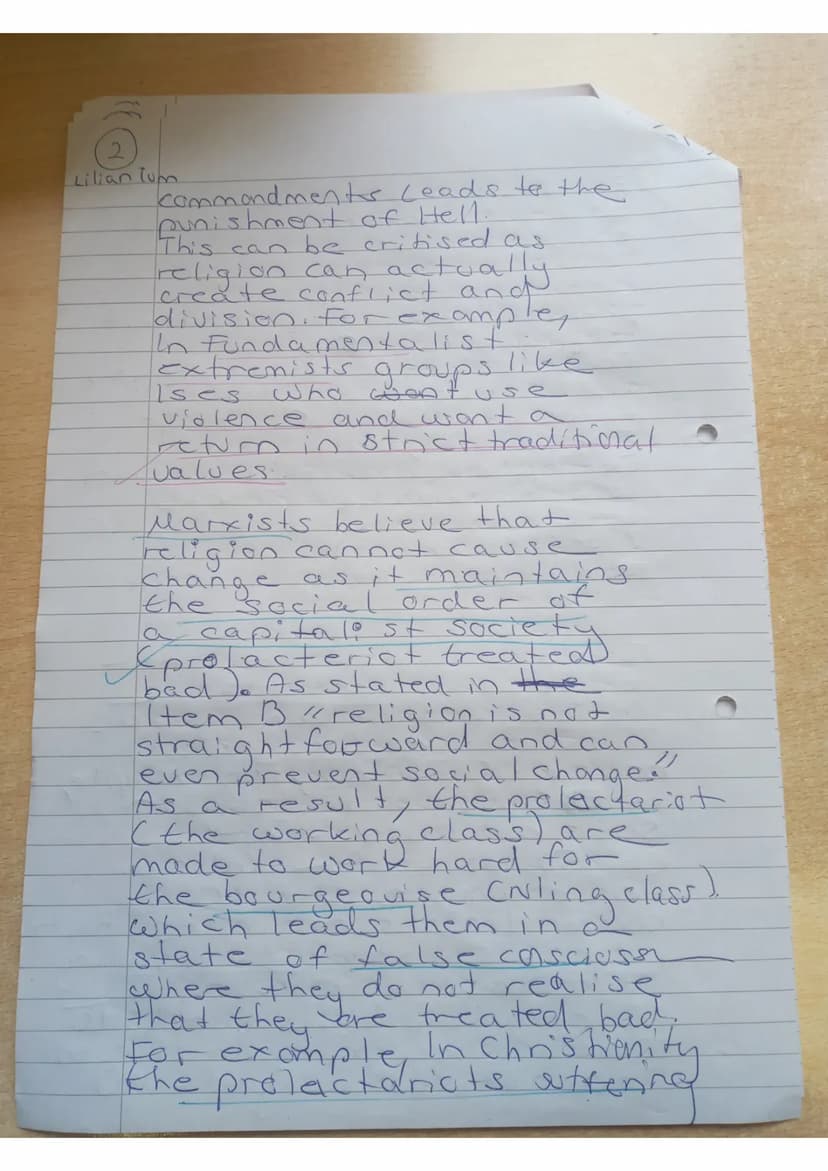 2
Lilian Tum
commandments leads to the
punishment of Hell.
This can be critised as
religion can actually
create conflict and
division. For example,
In fundamentalist
extremists groups like
Ises who want use
violence and want a
return in strict traditional
values.
Marxists believe that
religion cannot cause
change as it maintains
the social order of
a capitalist society
(prolacteriot treated
bad). As stated in the
Item B "religion is not
straightforward and can
even prevent social change."
As a result, the prolectariot
(the working class) are
made to work hard for
the bourgeouise (ruling class)
which leads them in a
state of false consciossn
where they do not realise
that they are treated bad.
For example, In Christianity
the prolactariots suffering